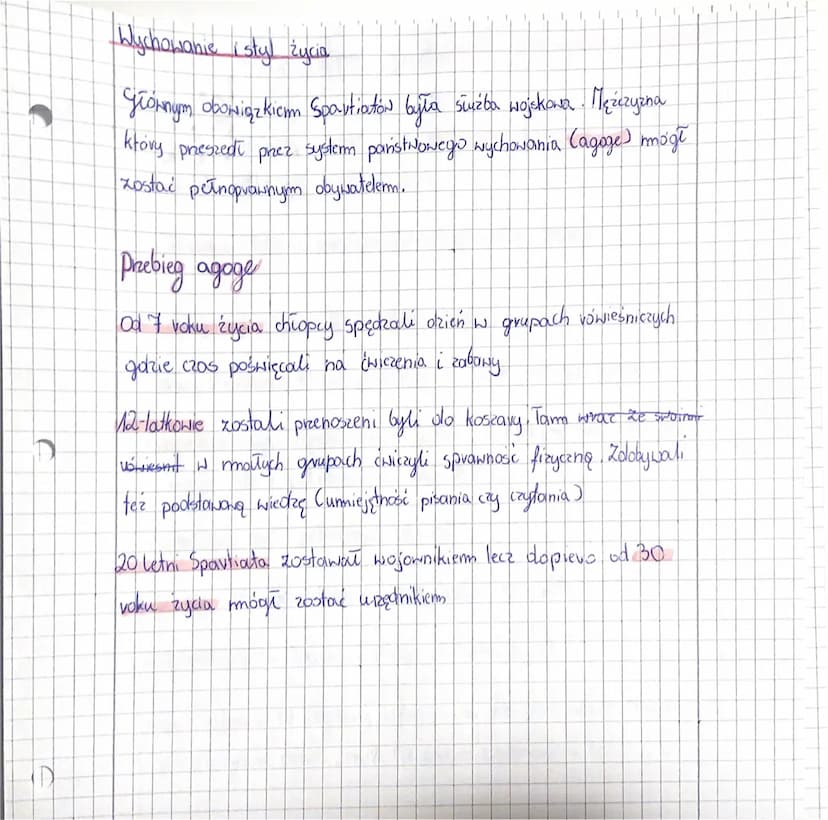 Wychowanie i styl życia
Głównym obowiązkiem Spartiatów była służba wojskowa. Mężczyzna
który przeszedł przez system państwowego wychowania (agoge) mógł
zostać pełnoprawnym obywatelem.
Przebieg agoge
Od 7 roku życia chłopcy spędzali dzień w grupach rówieśniczych
gdzie czas poświęcali na ćwiczenia i zabawy
12-latkowie zostali przenoszeni byli do koszary. Tam wraz ze swoimi
rówieśni w małych grupach ćwiczyli sprawność fizyczną. Zdobywali
też podstawową wiedzę (umiejętność pisania czy czytania)
20 letni Spartiata zostawał wojownikiem lecz dopiero od 30
roku życia mógł zostać urzędnikiem